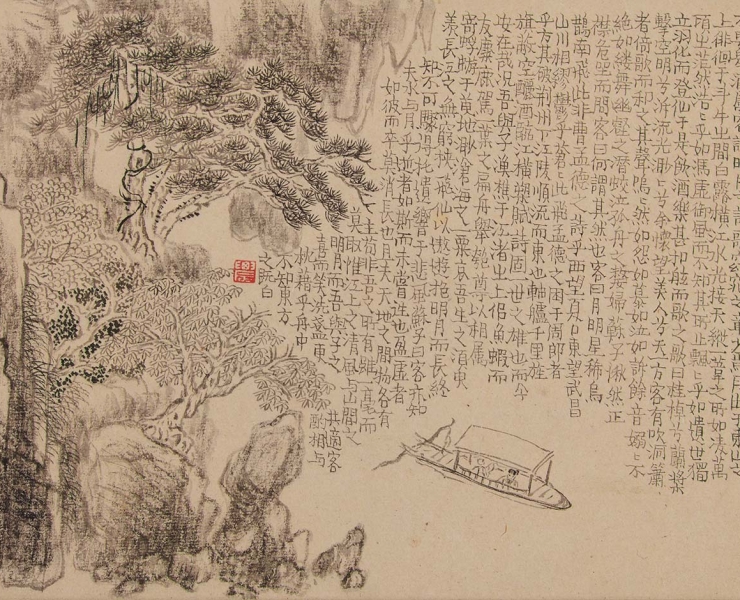 上徘徊于斗牛之間白露橫江水光接天縱一葦之所如凌萬
頃之茫然浩浩乎如馮虛御風而不知其所止飄飄乎如遺世獨
立羽化而登仙于是飲酒樂甚扣舷而歌之歌曰桂棹兮蘭槳
擊空明兮泝流光渺渺兮余懷望美人兮天一方客有吹洞簫
者倚歌而和之其聲嗚嗚然如怨如慕如泣如訴餘音嫋嫋不
絕如縷舞幽壑之潛蛟泣孤舟之嫠婦蘇子愀然正
襟危坐而問客曰何謂其然也客曰月明星稀烏
鵲南飛此非曹孟德之詩乎西望夏口東望武昌
山川相繆鬱乎蒼此非孟德之困于周郎者
乎方其破荊州下江陵順流而東也舳艫千里旌
旗蔽空釃酒臨江橫槊賦詩固一世之雄也而今
安在哉況吾與子漁樵于江渚之上侶魚蝦而
友麋鹿駕一葉之扁舟舉匏尊以相屬
寄蜉蝣于天地渺滄海之一粟哀吾生之須臾
羨長江之無窮挾飛仙以遨遊抱明月而長終
知不可乎驟得託遺響于悲風蘇子曰客亦知
夫水與月乎逝者如斯而未嘗往也盈虛者
如彼而卒莫消長也且夫天地之間物各有
主苟非吾之所有雖一毫而
莫取惟江上之清風與山間之
明月而吾與子之 共適客
喜而笑洗盞更 相與
枕藉乎舟中
不知東方
之既白